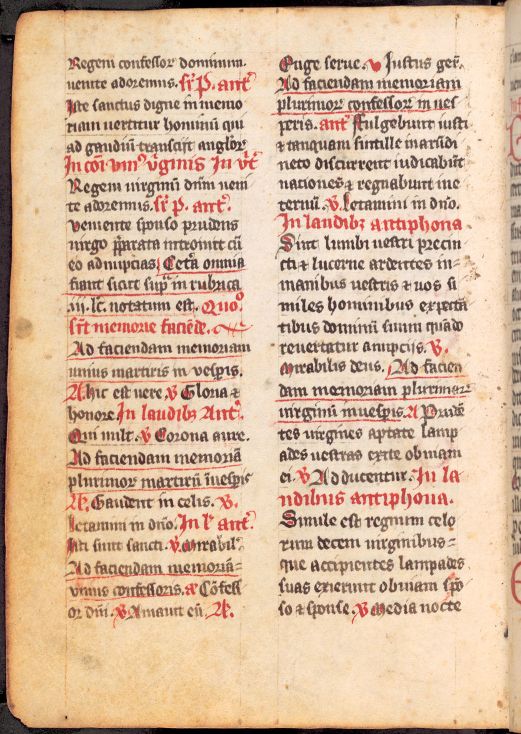 Regem confessor dominum.
venite adoremus. sr̄ P. ant̄.
Iste sanctus digne in memo
riam vertitur hominū qui
ad gaudiū transcijt anglor̄
In cōī. vniꝰ v̄ginis In v̄t̄.
Regem virginū dn̄m veni
te adoremus. sr̄ P. ant̄.
Veniente sponso prudens
virgo p̄parata introiuit cū
eo ad nupcias. Cet̄a omnia
fiant sicut sup̄ in rubrica
.iii. lc̄. notatum est. Quoº
sr̄t memorie faciēde.
Ad faciendam memoriam
unius martiris in vesp̄is.
A. hic est vere. V Gloria et
honore In laudibꝫ Ant̄.
Qui mih̄t. V Corona aure.
Ad faciendam memoriā
plurimor martirū ī vesp̄is
A. Gaudent in celis. V.
Letamini in dn̄o. In l̄. ant̄.
Isti sunt sancti. V. Mirabil̄.
Ad faciendam memoriā
vnius confessoris. A Cōfess
or dn̄i. V Amauit eū A.
Euge serue. V Justus ger̄.
Ad faciendam memoriam
plurimor confessor in ves
peris. ant̄ ffulgebunt iusti
et tanquam scintille in arūdi
neto discurrent iudicabūt
naciones et regnabunt in e
ternū. V. Letamini in dn̄o.
In laudibꝫ antiphona
Sint lumbi vestri precin
cti et lucerne ardentes in
manibus vestris et vos si
miles hominibus expectā
tibus dominū suum quādo
reuertatur a nupcijs. V.
Mirabilis deus. Ad facien
dam memoriam plurimar
virginū in vesp̄is A Prudē
tes virgines aptate lamp
ades vestras exite obuiam
ei. V Adducentur. In la
udibus antiphona.
Simile est regnum celo
rum decem virginibus
que accipientes lampades
suas exierunt obuiam spō
so et sponse. V Media nocte